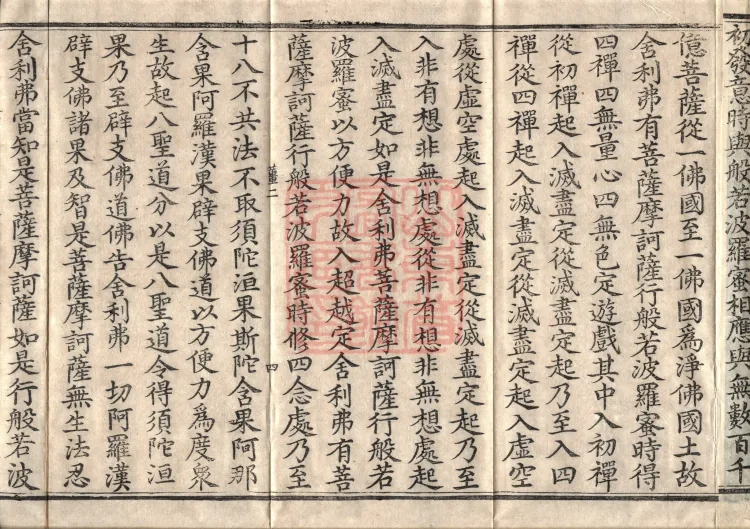 初發意時與般若波羅蜜相應與無數百千
億菩薩從一佛國至一佛國爲淨佛國土故
舍利弗有菩薩摩訶薩行般若波羅蜜時得
四禪四無量心四無色定遊戲其中入初禪
從初禪起入滅盡定從滅盡定起乃至入四
禪從四禪起入滅盡定從滅盡定起入虛空
處從虛空處起入滅盡定從滅盡定起乃至
入非有想非無想處從非有想非無想處起
入滅盡定如是舍利弗菩薩摩訶薩行般若
波羅蜜以方便力故入超越定舍利弗有菩
薩摩訶薩行般若波羅蜜時修四念處乃至
十八不共法不取須陀洹果斯陀含果阿那
含果阿羅漢果辟支佛道以方便力爲度衆
生故起八聖道分以是八聖道令得須陀洹
果乃至辟支佛道佛告舍利弗一切阿羅漢
辟支佛諸果及智是菩薩摩訶薩無生法忍
舍利弗當知是菩薩摩訶薩如是行般若波